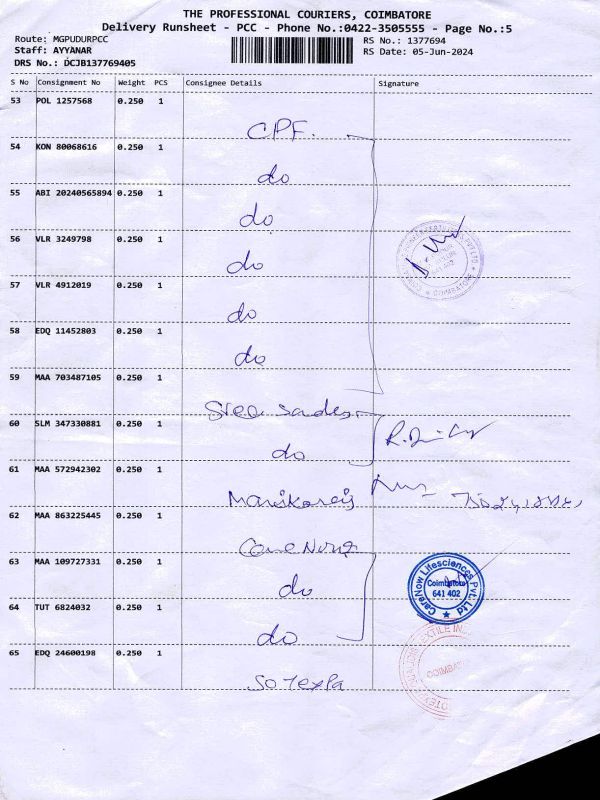 THE PROFESSIONAL COURIERS, COIMBATORE
Delivery Runsheet - PCC - Phone No.:0422-3505555 - Page No.:5
Route: MGPUDURPCC
RS No.: 1377694
Staff: AYYANAR
RS Date: 05-Jun-2024
DRS No.: DCJB137769405
S No Consignment No Weight PCS Consignee Details Signature
53 POL 1257568 0.250 1
CPF.
54 KON 80068616 0.250 1
do
55 ABI 20240565894 0.250 1
do
56 VLR 3249798 0.250 1
do
57 VLR 4912019 0.250 1
do
58 EDQ 11452803 0.250 1
do
59 MAA 703487105 0.250 1
Sree
60 SLM 347330881 0.250 1
do
61 MAA 572942302 0.250 1
62 MAA 863225445 0.250 1
63 MAA 109727331 0.250 1
do
CareNow Lifesciences Pvt. Ltd
Coimbatore
641 402
64 TUT 6824032 0.250 1
do
65 EDQ 24600198 0.250 1
Sotexpa